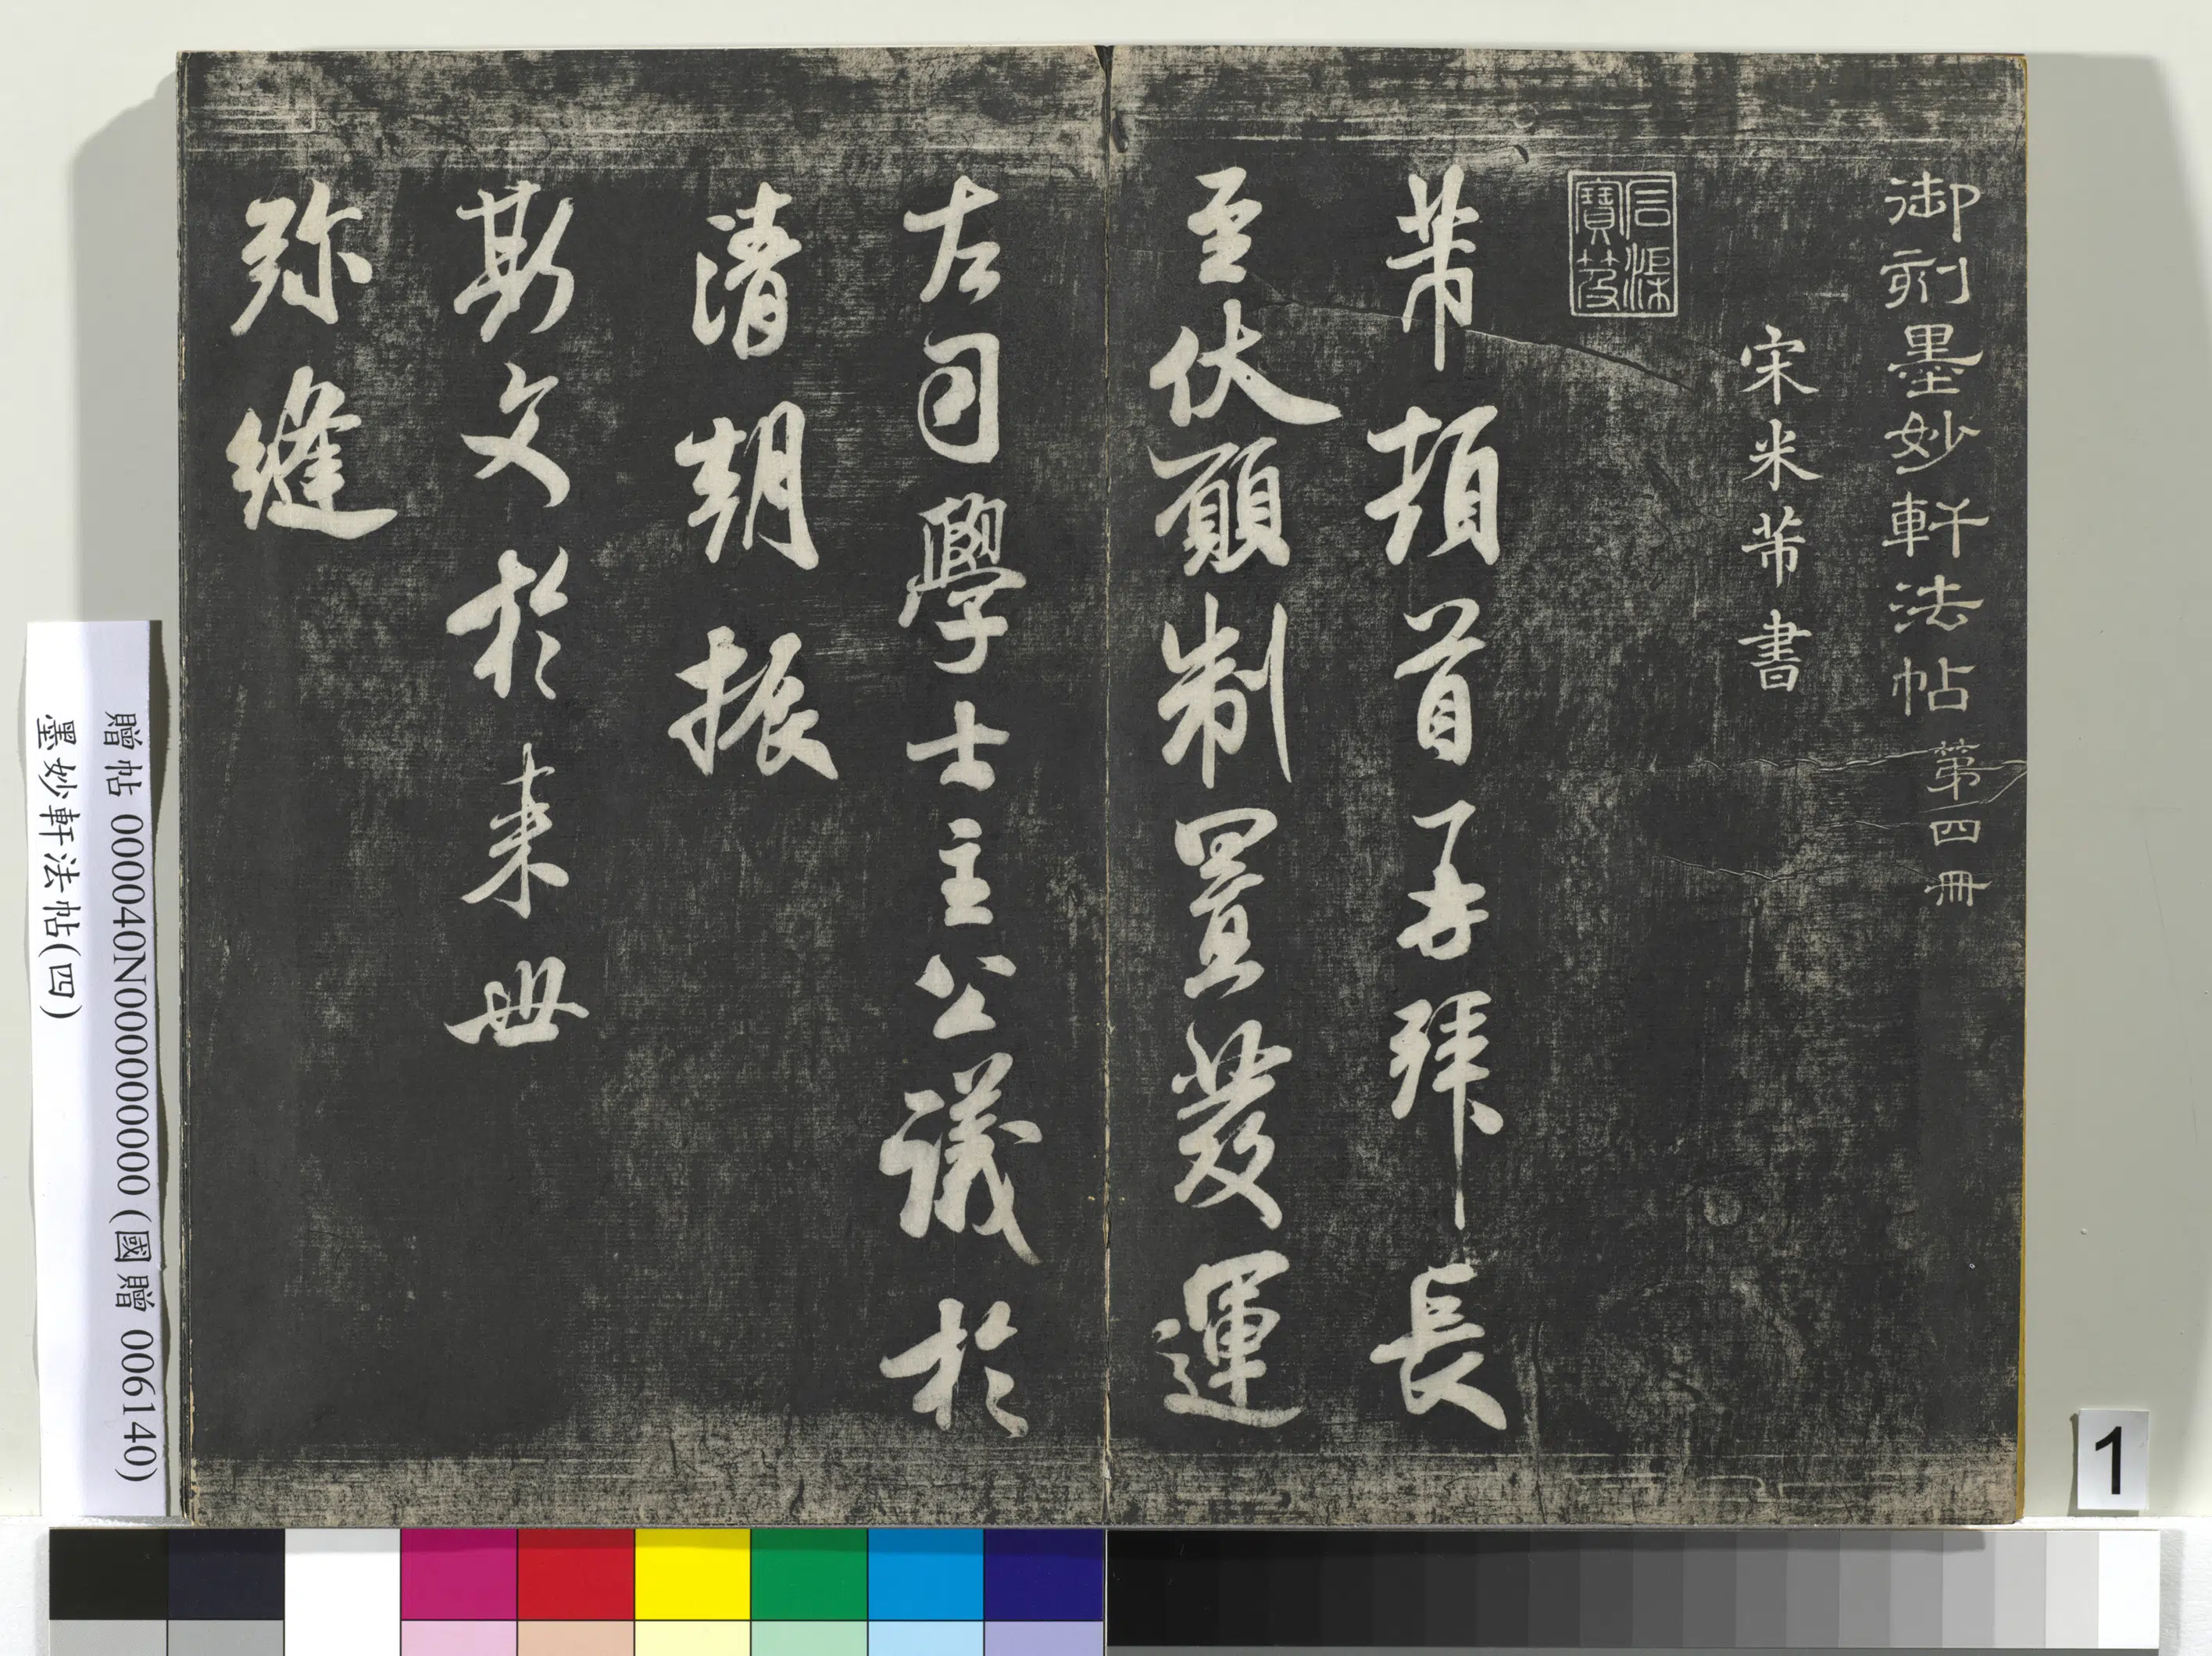 御刻墨妙軒法帖 第四冊
宋米芾書
石渠寶笈
芾頓首再拜長
至伏願制置發運
左司學士主公議於
清朝振
斯文於來世
弥縫
贈帖 000040N000000000 (國贈 006140)
墨妙軒法帖(四)
1